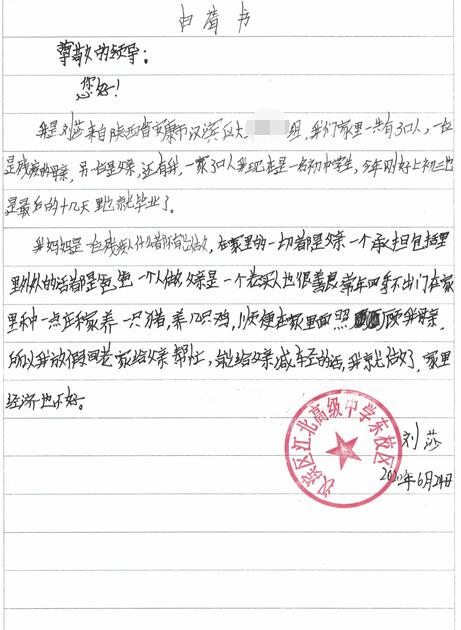 申请书
尊敬的领导：
您好！
我是刘莎来自陕西省安康市汉滨区大 组，我们家里一共有3口人，一位
是残疾的母亲，另一位是父亲，还有我，一家3口人我现在是一名初中学生，今年刚好上初三也
是最后的十几天里也就毕业了。
我妈妈是一位残疾人什么都不会做，在家里的一切都是父亲一个承担包括里
里外外的活都是爸爸一个人做父亲是一个老实人也很善良常年四季不出门在家
里种一点庄稼养一只猪，养几只鸡，顺便在家里面照顾我母亲，
所以我放假回老家给父亲帮忙，能给父亲减轻的话，我就去做了，家里
经济也不好。
刘莎
2022年6月24日
汉滨区江北高级中学东校区